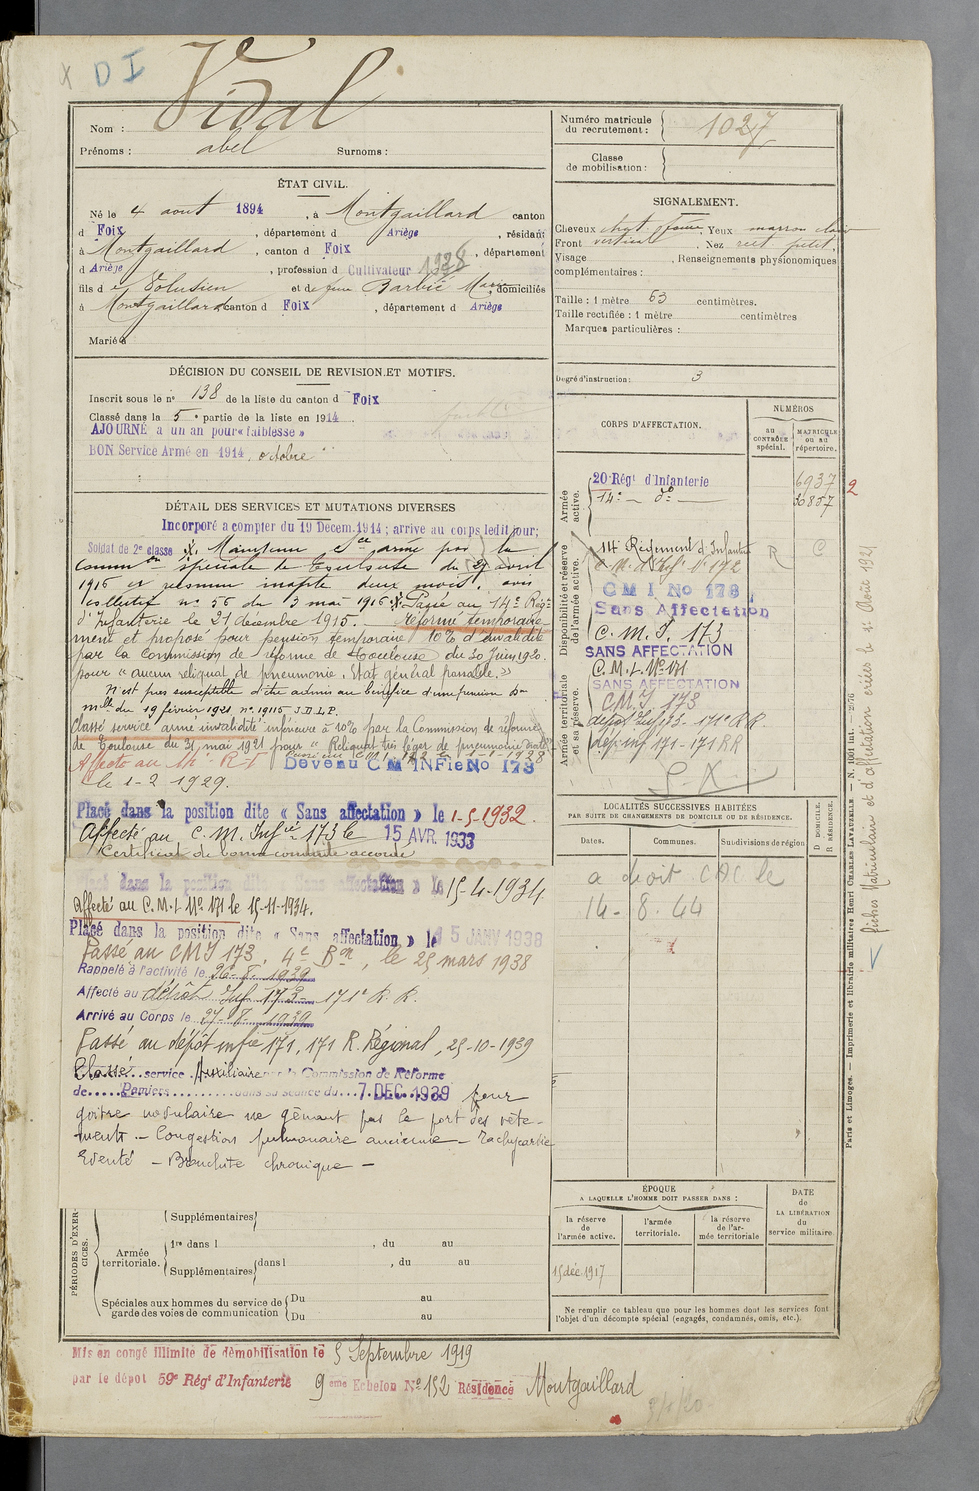 x D I
Vidal
Nom :
Prénoms : abel Surnoms :
ÉTAT CIVIL.
Né le 4 aout 1894, à Montgaillard canton
d Foix, département d Ariège, résidant
à Montgaillard, canton d Foix, département
d Ariège, profession d Cultivateur 1928
fils d Volusien et de feue Barbié Marie, domiciliés
à Montgaillard canton d Foix, département d Ariège
Marié à
DÉCISION DU CONSEIL DE REVISION ET MOTIFS.
Inscrit sous le n° 138 de la liste du canton d Foix
Classé dans la 5e partie de la liste en 1914
AJOURNÉ à un an pour « faiblesse »
BON Service Armé en 1914 octobre
DÉTAIL DES SERVICES ET MUTATIONS DIVERSES
Incorporé a compter du 19 Decem. 1914 ; arrivé au corps ledit jour;
Soldat de 2e classe Maintenu Sce armé par la
Common spéciale de Toulouse du 27 avril
1916 et reconnu inapte deux mois, avis
collectif n° 56 du 3 mai 1916. Passé au 14e Régt
d'Infanterie le 21 decembre 1915. Réformé temporaire-
ment et proposé pour pension temporaire 10% d'invalidité
par la Commission de réforme de Toulouse du 30 Juin 1920.
pour « aucun reliquat de pneumonie. Etat général passable. »
N'est pas susceptible d'être admis au bénéfice d'une pension Don
mlle du 19 février 1921, n° 19115 J.D.L.P.
Classé service armé invalidité inférieure à 10% par la Commission de réforme
de Toulouse du 31 mai 1921 pour « Reliquat très léger de pneumonie droite »
Affecté au
Devenu C M INFie No 173
le 1-2 1929.
Placé dans la position dite « Sans affectation » le 1-5-1932.
Affecté au C. M. Infie 173 le 15 AVR. 1933
Certificat de bonne conduite accordé
Placé dans la position dite « Sans affectation » le 15-4-1934
Affecté au C.M.I. N° 171 le 15-11-1934.
Placé dans la position dite « Sans affectation » le 15 JANV 1938
Passé au CMI 173, 4e Bon, le 25 mars 1938
Rappelé à l'activité le 26-8-1939
Affecté au dépôt Inf 173 - 171e R. R.
Arrivé au Corps le 27-8-1939
Passé au dépôt infie 171, 171 R. Régional, 25-10-1939
Classé service Auxiliaire par la Commission de Réforme
de Pamiers dans sa séance du 7 DEC. 1939 pour
goitre nodulaire ne gênant pas le port des vête-
ments. - Congestion pulmonaire ancienne - Tachycardie
Eventé - Bronchite chronique -
PÉRIODES D'EXERCICES.
Supplémentaires
Armée territoriale.
1re dans l , du au
Supplémentaires dans l , du au
Spéciales aux hommes du service de garde des voies de communication
Du au
Du au
Numéro matricule du recrutement : 1027
Classe de mobilisation :
SIGNALEMENT.
Cheveux chat foncé. Yeux marron clair
Front vertical. Nez rect petit.
Visage . Renseignements physionomiques
complémentaires :
Taille : 1 mètre 63 centimètres.
Taille rectifiée : 1 mètre centimètres
Marques particulières :
Degré d'instruction : 3
CORPS D'AFFECTATION.
NUMÉROS
au CONTRÔLE spécial.
MATRICULE ou au répertoire.
Armée active.
20 Régt d'Infanterie 6937
14e - do - 30857
2
Disponibilité et réserve de l'armée active.
14e Régiment d'Infanterie R C
C. M. d'Infie N° 172
C M I No 173
Sans Affectation
C. M. I. 173
SANS AFFECTATION
Armée territoriale et sa réserve.
C.M.I. N° 171
SANS AFFECTATION
CMI 173
dépôt Inf 173 - 171e R R.
dép. inf 171 - 171 RR
S. X
LOCALITÉS SUCCESSIVES HABITÉES
PAR SUITE DE CHANGEMENTS DE DOMICILE OU DE RÉSIDENCE.
Dates. Communes. Subdivisions de région D DOMICILE. R RÉSIDENCE.
a droit CAC le
14 - 8. 44
ÉPOQUE
A LAQUELLE L'HOMME DOIT PASSER DANS :
la réserve de l'armée active.
l'armée territoriale.
la réserve de l'armée territoriale
DATE de LA LIBÉRATION du service militaire.
15 déc. 1917
Ne remplir ce tableau que pour les hommes dont les services font
l'objet d'un décompte spécial (engagés, condamnés, omis, etc.).
Paris et Limoges. — Imprimerie et librairie militaires Henri CHARLES-LAVAUZELLE.
fiches Matriculaire et d'affectation créées le
Mis en congé illimité de démobilisation le 5 Septembre 1919
par le dépôt 59e Régt d'Infanterie 9eme Echelon N° 152 Résidence Montgaillard